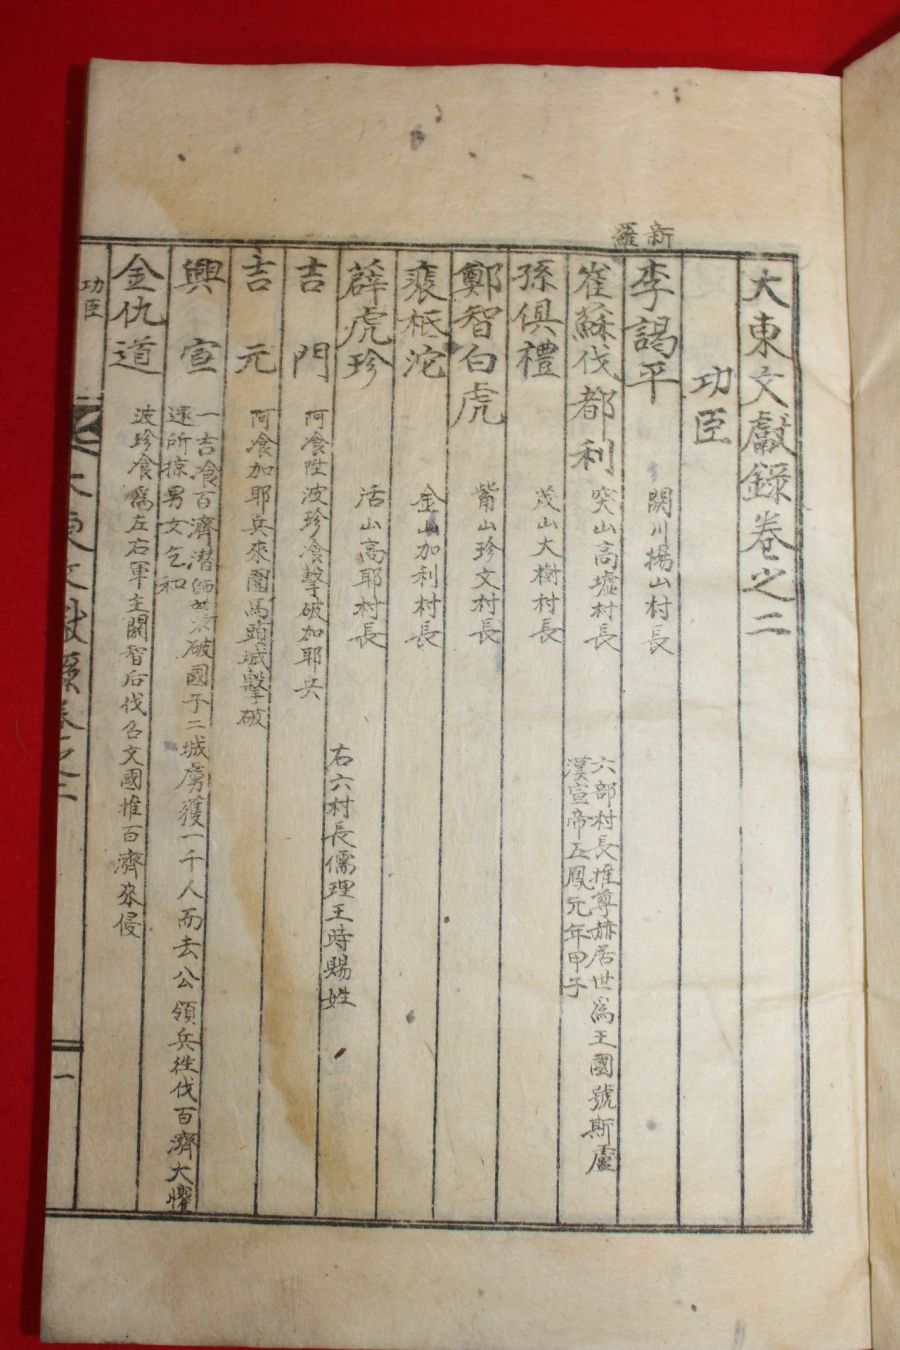 大東文獻錄卷之二
功臣
新羅
李謁平 閼川揚山村長
崔蘇伐都利 突山高墟村長 六部村長推尊赫居世爲王國號斯盧
漢宣帝五鳳元年甲子
孫俱禮 茂山大樹村長
鄭智白虎 觜山珍文村長
裵秪沱 金山加利村長
薛虎珍 活山高耶村長
右六村長儒理王時賜姓
吉門 阿飡陞波珍飡擊破加耶兵
吉元 阿飡加耶兵來圍馬頭城擊破
興宣 一吉飡百濟潛師破國子二城虜獲一千人而去公領兵往伐百濟大懼
還所掠男女乞和
金仇道 波珍飡爲左右軍主閼智后伐召文國推百濟來侵
功臣
大東文獻錄卷之二
一